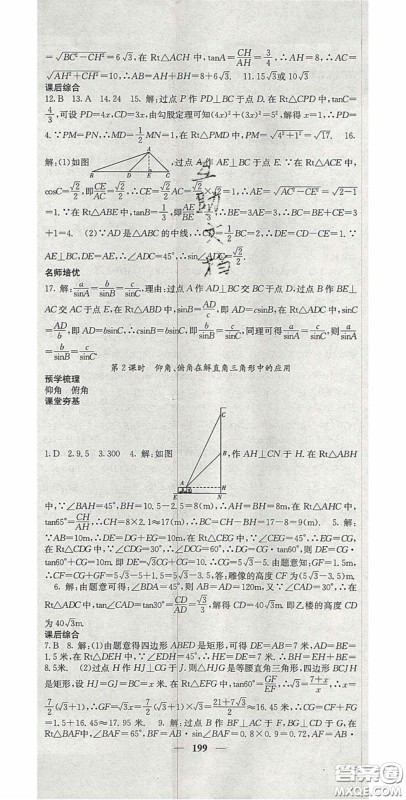 =√(BC²−CH²)=6√3,在 Rt△ACH 中,tanA=CH/AH=3/4,∴AH=8,∴AC=
√(AH²+CH²)=10,∴AB=AH+BH=8+6√3.  11.15√3或 10√3
课后综合
12.B  13.A  14.24  15.解:过点 P 作 PD⊥BC 于点 D.在 Rt△CPD 中,tanC=
4/3,可设 PD=4x,CD=3x,由勾股定理可知(4x)²+(3x)²=5²,解得 x=1,∴PD=
4.∵PM=PN,∴MD=1/2MN=1,在 Rt△PMD 中,PM=√(4²+1²)=√17.  16.
解:(1)如图
A
B D E C
,过点 A 作 AE⊥BC 于点 E.∵在 Rt△ACE 中,
cosC=√2/2,即CE/AC=√2/2,∴CE=AC·√2/2=√2×√2/2=1.∴AE=√(AC²−CE²)=√(2−1)
=1.∵在 Rt△ABE 中,tanB=1/3,即AE/BE=1/3,∴BE=3AE=3,∴BC=BE+CE=3
+1=4.  (2)∵AD 是△ABC 的中线,∴CD=1/2BC=2,∴DE=CD−CE=1.∵
AE⊥BC,DE=AE,∴∠ADC=45°,∴sin∠ADC=√2/2.
名师培优
17.解:a/sinA=b/sinB=c/sinC,理由:过点 A 作 AD⊥BC 交 BC 于点 D,过点 B 作 BE⊥
AC 交 AC 于点 E.在 Rt△ABD 中,sinB=AD/c,即 AD=csinB,在 Rt△ADC 中,sinC=
AD/b,即 AD=bsinC,∴csinB=bsinC,即b/sinB=c/sinC,同理可得a/sinA=c/sinC,则a/sinA=
b/sinB=c/sinC.
第 2 课时  仰角、俯角在解直角三角形中的应用
预学梳理
仰角  俯角
课堂夯基
C
B
A H
E N
1.D  2.9.5  3.300  4.解:如图
,作 AH⊥CN 于 H.在 Rt△ABH
中,∵∠BAH=45°,BH=10.5−2.5=8(m),∴AH=BH=8m,在 Rt△AHC 中,
tan65°=CH/AH,∴CH=8×2.1≈17(m),∴BC=CH−BH=17−8=9(m).  5.解:
∵AB=10m,∴DE=DG+EG=10m,在 Rt△CEG 中,∵∠CEG=45°,∴EG=CG,
在 Rt△CDG 中,∵∠CDG=30°,∠DCG=60°,∴DG=CG·tan60°,则 DE=CG·
tan60°+CG=10m.即 DE=√3CG+CG=10.∴CG=5√3−5.由题意知:GF=1.5m,
∴CF=CG+GF=5√3−5+1.5=5√3−3.5,答:雕像的高度 CF 为(5√3−3.5)m.
6.解:由题意可得:∠BDA=45°,则 AB=AD=120m,又∵∠CAD=30°,∴在
Rt△ADC 中,tan∠CDA=tan30°=CD/AD=√3/3,解得 CD=40√3m,即乙楼的高度 CD
为 40√3m.
课后综合
7.B  8.解:(1)由题意得四边形 ABED 是矩形,可得 DE=AB=7 米,AD=BE=
1.5 米,在 Rt△DEH 中,∵∠EDH=45°,∴HE=DE=7 米.∴BH=EH+BE=
8.5 米.  (2)过点 H 作 HJ⊥CG 于 J.则△HJG 是等腰直角三角形,四边形 BCJH
是矩形,设 HJ=GJ=BC=x.在 Rt△EFG 中,tan60°=GF/EF,∴√3=(7+x)/x,∴x=
7/2(√3+1),∴GF=√3x=7√3/2(√3+1)=(21+7√3)/2≈16.45 米,∴CG=CF+FG
=1.5+16.45≈17.95 米.  9.解:过点 B 作 BF⊥AC 于 F,BG⊥CD 于 G,在
Rt△BAF中,∠BAF=65°,BF=AB·sin∠BAF=0.8×0.9=0.72,AF=AB·
199
答案圈
MXQE.COM